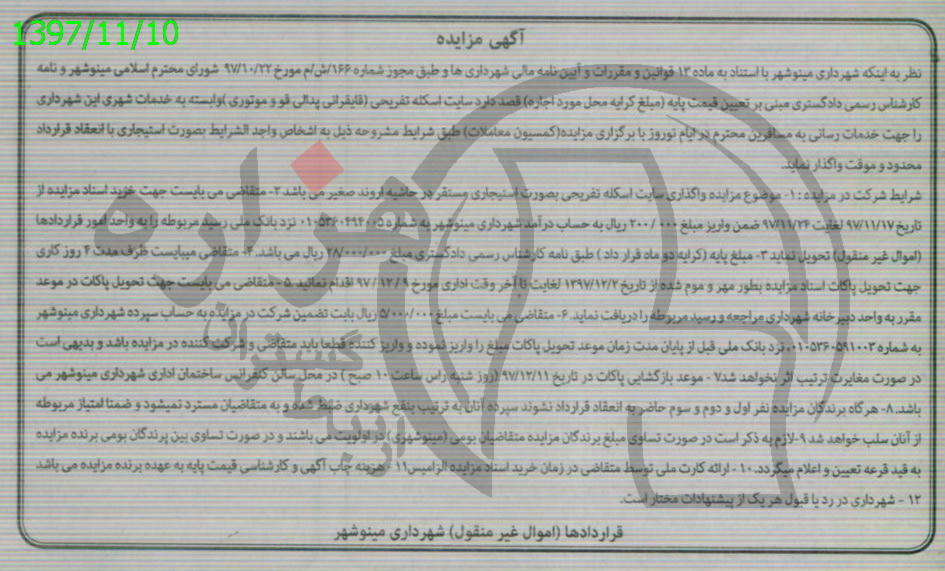 1397/11/10
آگهی مزایده
نظر به اینکه شهرداری مینوشهر با استناد به ماده ۱۳ قوانین و مقررات و آیین نامه مالی شهرداری ها و طبق مجوز شماره ۱۶۶/ش/م مورخ ۹۷/۱۰/۲۲ شورای محترم اسلامی مینوشهر و نامه
کارشناس رسمی دادگستری مبنی بر تعیین قیمت پایه (مبلغ کرایه محل مورد اجاره) قصد دارد سایت اسکله تفریحی (قایقرانی پدالی قو و موتوری )وابسته به خدمات شهری این شهرداری
را جهت خدمات رسانی به مسافرین محترم در ایام نوروز با برگزاری مزایده(کمسیون معاملات) طبق شرایط مشروحه ذیل به اشخاص واجد الشرایط بصورت استیجاری با انعقاد قرارداد
محدود و موقت واگذار نماید.
شرایط شرکت در مزایده : ۱- موضوع مزایده واگذاری سایت اسکله تفریحی بصورت استیجاری مستقر در حاشیه اروند صغیر می باشد ۲- متقاضی می بایست جهت خرید اسناد مزایده از
تاریخ ۹۷/۱۱/۱۷ لغایت ۹۷/۱۱/۲۴ ضمن واریز مبلغ ۲۰۰/۰۰۰ ریال به حساب درآمد شهرداری مینوشهر به شماره نزد بانک ملی رسید مربوطه را به واحد امور قراردادها
(اموال غیر منقول) تحویل نماید ۳- مبلغ پایه (کرایه دو ماه قرار داد ) طبق نامه کارشناس رسمی دادگستری مبلغ ۲۸/۰۰۰/۰۰۰ ریال می باشد. ۴- متقاضی میبایست ظرف مدت ۴ روز کاری
جهت تحویل پاکات اسناد مزایده بطور مهر و موم شده از تاریخ ۱۳۹۷/۱۲/۲ لغایت تا آخر وقت اداری مورخ ۹۷/۱۲/۹ اقدام نمائید ۵- متقاضی می بایست جهت تحویل پاکات در موعد
مقرر به واحد دبیر خانه شهرداری مراجعه و رسید مربوطه را دریافت نماید. ۶- متقاضی می بایست مبلغ ۵/۰۰۰/۰۰۰ ریال بابت تضمین شرکت در مزایده به حساب سپرده شهرداری مینوشهر
به شماره ۰۱۰۵۳۶۰۵۹۱۰۰۳ نزد بانک ملی قبل از پایان مدت زمان موعد تحویل پاکات مبلغ را واریز نموده و واریز کننده قطعا باید متقاضی و شرکت کننده در مزایده باشد و بدیهی است
در صورت مغایرت ترتیب اثر نخواهد شد ۷- موعد بازگشایی پاکات در تاریخ ۹۷/۱۲/۱۱ (روز شنبه راس ساعت ۱۰ صبح ) در محل سالن کنفرانس ساختمان اداری شهرداری مینوشهر می
باشد. ۸- هر گاه برندگان مزایده نفر اول و دوم و سوم حاضر به انعقاد قرارداد نشوند سپرده آنان به ترتیب بنفع شهرداری ضبط شده و به متقاضیان مسترد نمیشود و ضمنا امتیاز مربوطه
از آنان سلب خواهد شد ۹-لازم به ذکر است در صورت تساوی مبلغ برندگان مزایده متقاضیان بومی (مینوشهری) در اولویت می باشند و در صورت تساوی بین برندگان بومی برنده مزایده
به قید قرعه تعیین و اعلام میگردد. ۱۰- ارائه کارت ملی توسط متقاضی در زمان خرید اسناد مزایده الزامیس ۱۱- هزینه چاپ آگهی و کارشناسی قیمت پایه به عهده برنده مزایده می باشد
۱۲- شهرداری در رد یا قبول هر یک از پیشنهادات مختار است.
قراردادها (اموال غیر منقول) شهرداری مینوشهر